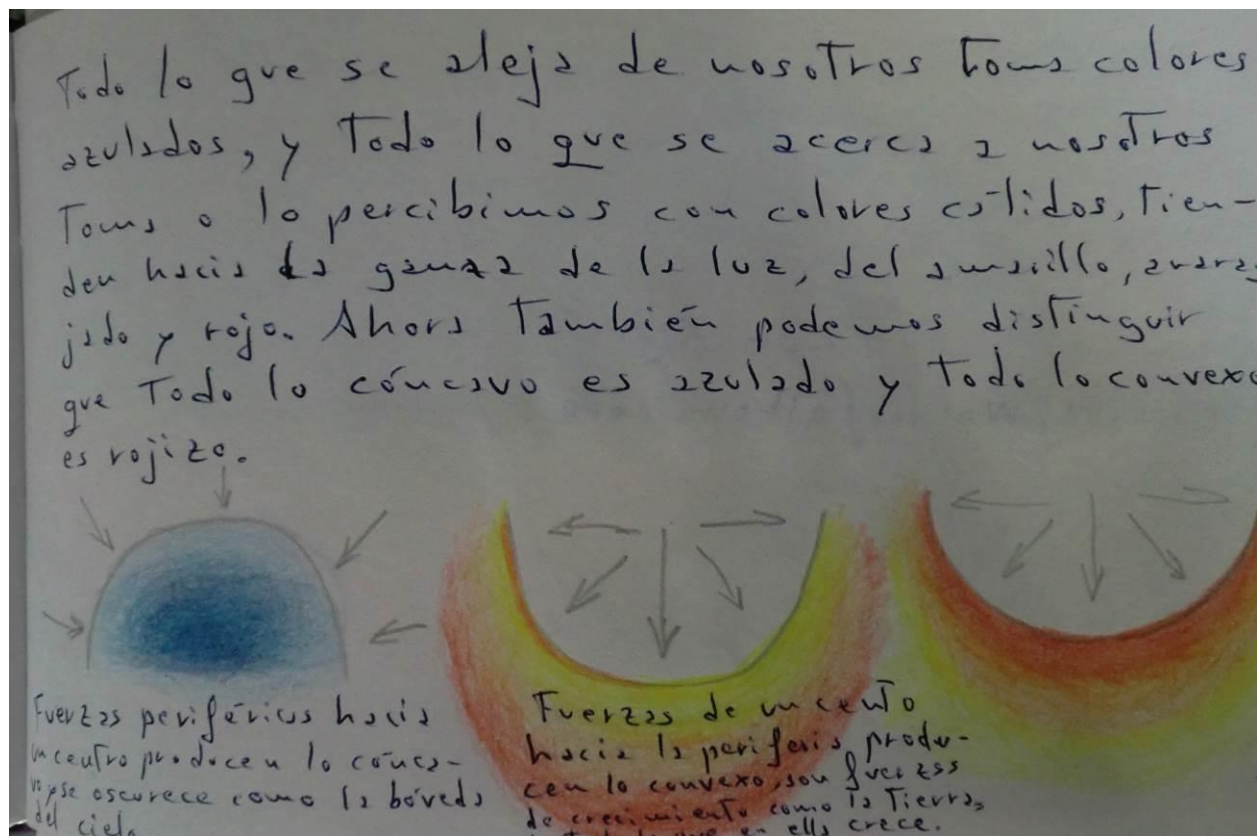 Todo lo que se aleja de nosotros toma colores
azulados, y Todo lo que se acerca a nosotros
Toma o lo percibimos con colores cálidos, Tien-
den hacia la gama de la luz, del amarillo, anaran
jado y rojo. Ahora También podemos distinguir
que Todo lo cóncavo es azulado y Todo lo convexo
es rojizo.
Fuerzas periféricas hacia
un centro producen lo cónca-
vo, se oscurece como la bóveda
del cielo
Fuerzas de un cento
hacia la periferia, produ-
cen lo convexo, son fuerzas
de crecimiento como la Tierra,
que en ella crece.